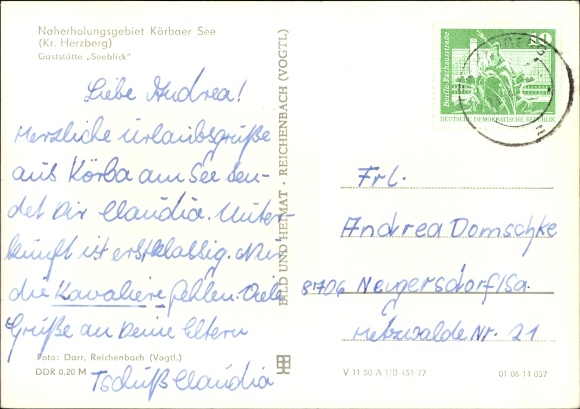 Naherholungsgebiet Körbaer See
(Kr. Herzberg)
Gaststätte „Seeblick"
Liebe Andrea!
Herzliche Urlaubsgrüße
aus Körba am See sen-
det Dir Claudia. Unter-
kunft ist erstklassig. Nur
die Kavaliere fehlen. Viele
Grüße an Deine Eltern
Tschüß Claudia
Foto: Darr, Reichenbach (Vogtl.)
DDR 0,20 M
BILD UND HEIMAT · REICHENBACH (VOGTL)
10
Berlin, Rathausstraße
DEUTSCHE DEMOKRATISCHE REPUBLIK
Frl.
Andrea Domschke
81706 Neugersdorf/Sa.
Hetzwalde Nr. 21
V 11 50 A 1/B 451.77
01 06 14 037